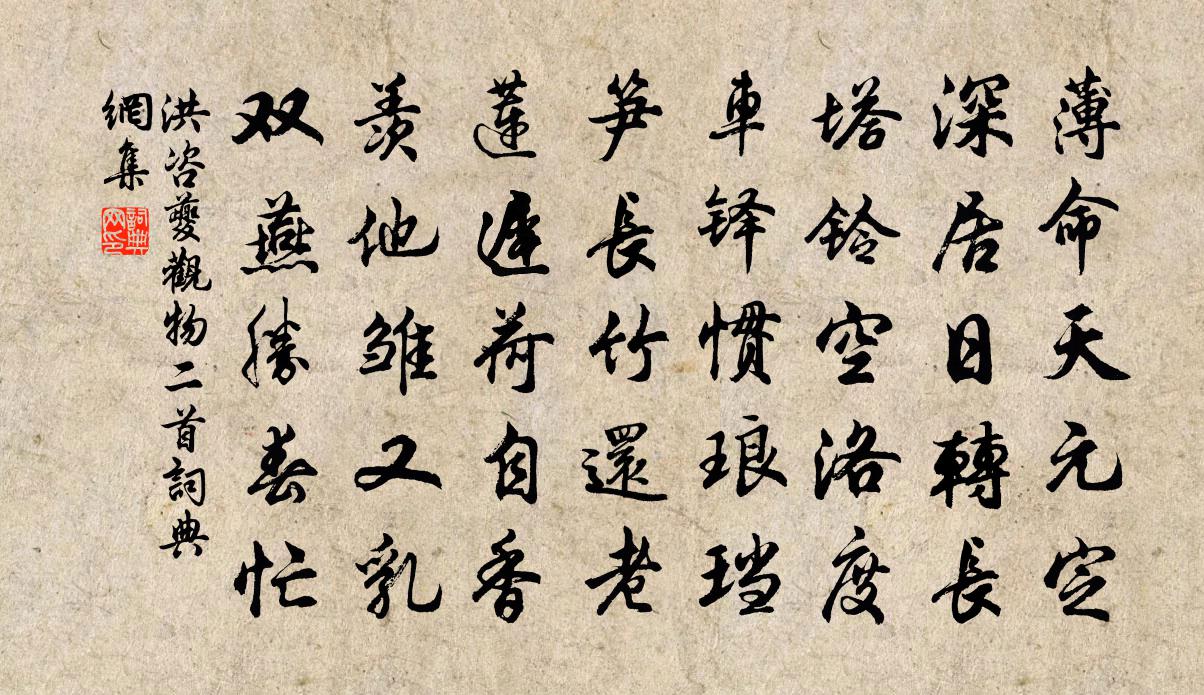 薄命天元定
深居日轉長
塔鈴空洛度
車铎慣琅珰
笋長竹還老
蓮遲荷自香
羨他雏又乳
双燕勝春忙
洪咨夔觀物二首詞典
網集
詞典
网印